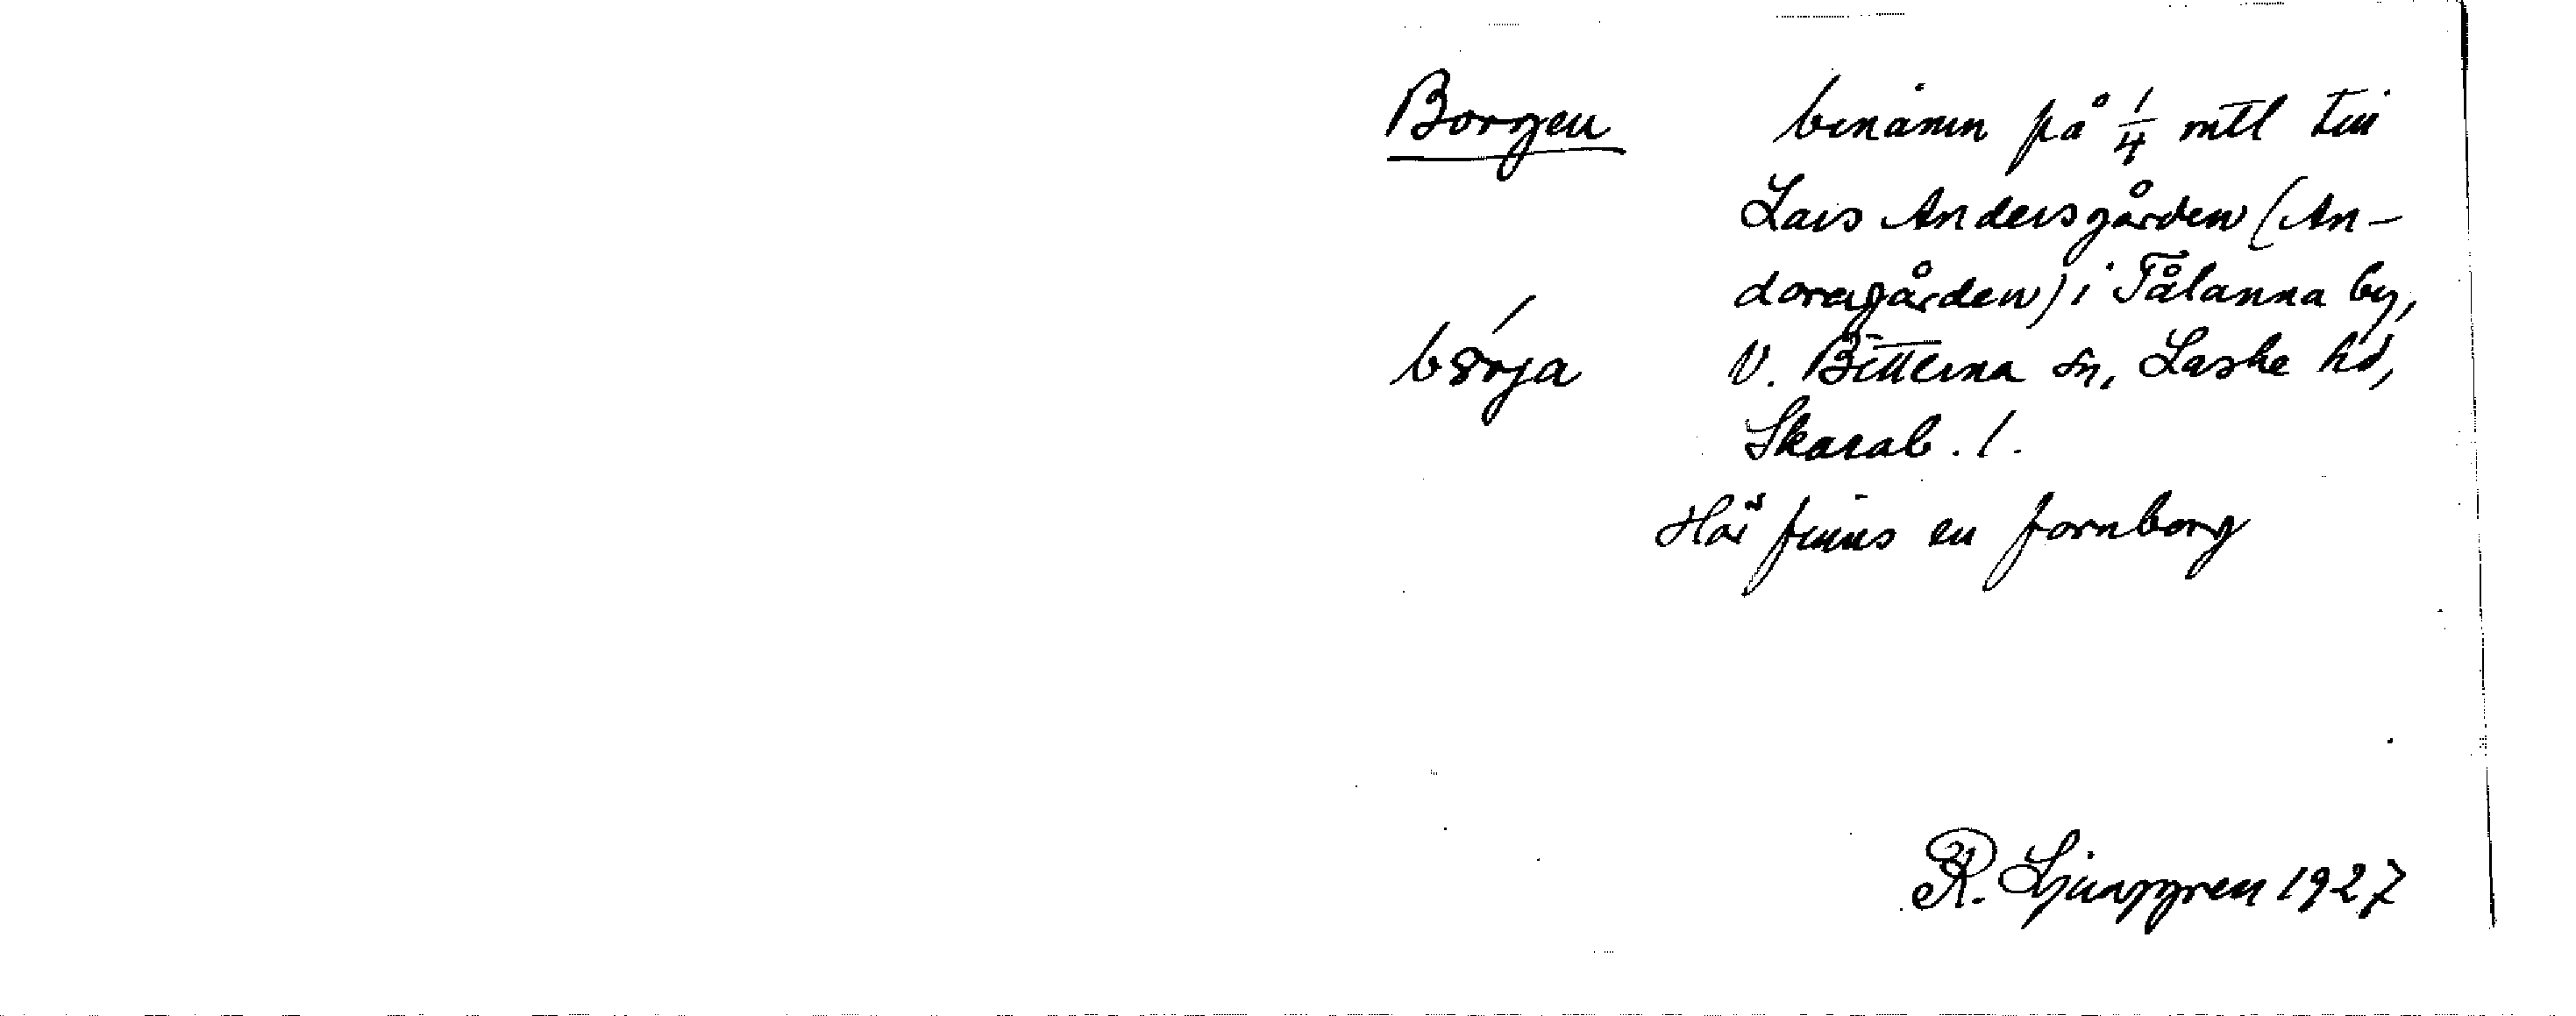 Borgen
binämn på 1/4 mtl till
Lars Andersgården (An-
doragården) i Tålanna by,
b8rja
V. Bitterna sn, Laske hd,
Skarab. l.
Här finns en fornborg
R. Ljunggren 1927